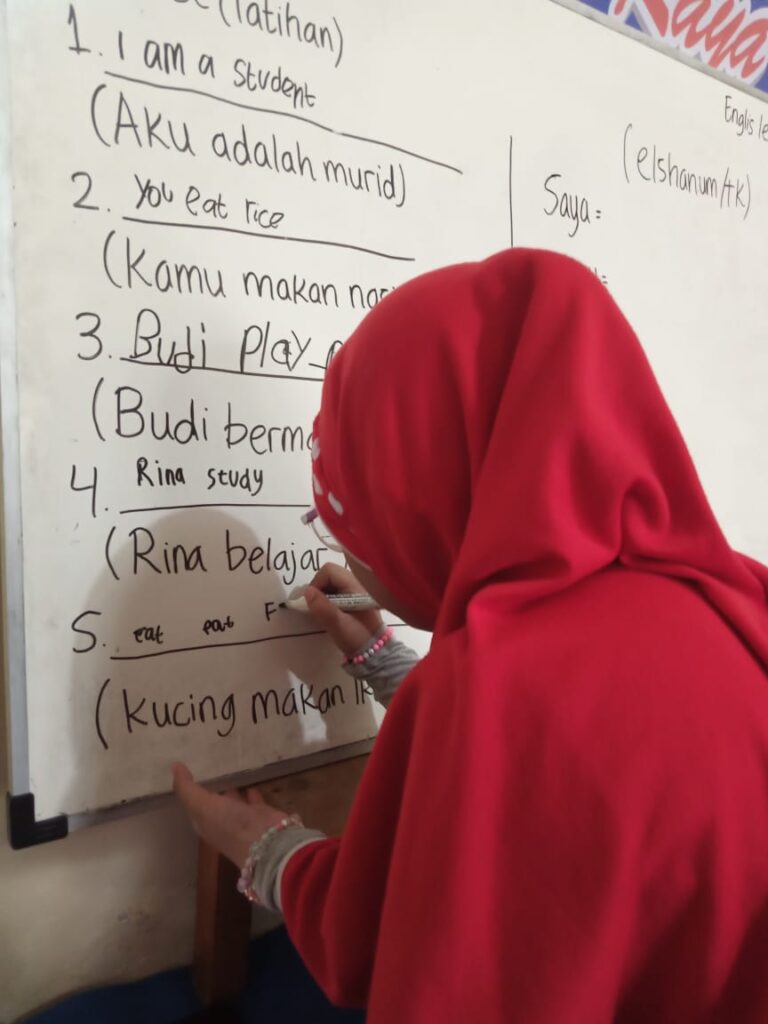 (latihan)
1. I am a student
(Aku adalah murid)
2. You eat rice
(Kamu makan
3. Budi play
(Budi
4. Rina study
(Rina belajar
5. eat eat F
(kucing makan
Kaya
Englis
(elshanum/tk)
Saya =